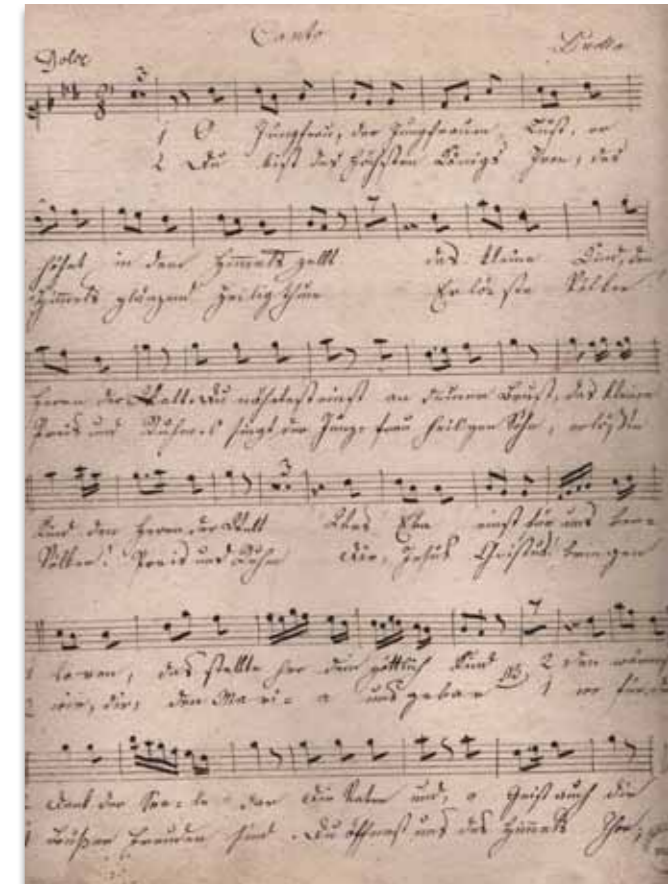 Canto
Dolce
Duetto
3
1 O Jungfrau, der Jungfrauen Lust, er
2 Du bist des höchsten Königs Thron, des
höhet in dem Himmels zelt das kleine Kind, den
Himmels glänzend heilig Erlöste Völker
7
Herrn der Welt. Du nährtest einst an deiner Brust, das kleine
Preis und Ruhm. singt der Jung- frau heiligen Sohn, erlößte
3
Kind den Herrn der Welt Was Eva einst für uns
Völker! Preis und Ruhm dir, Jesus Christus bringen
1 loren, das stellte her dein göttlich Kind 2 den
2 wir, dir, den Ma- ri- a uns gebar 1
7
Dank der See- le dar Die Vater und, o Geist auch dir
Freuden sind. Du öffnest uns des Himmels Thor,